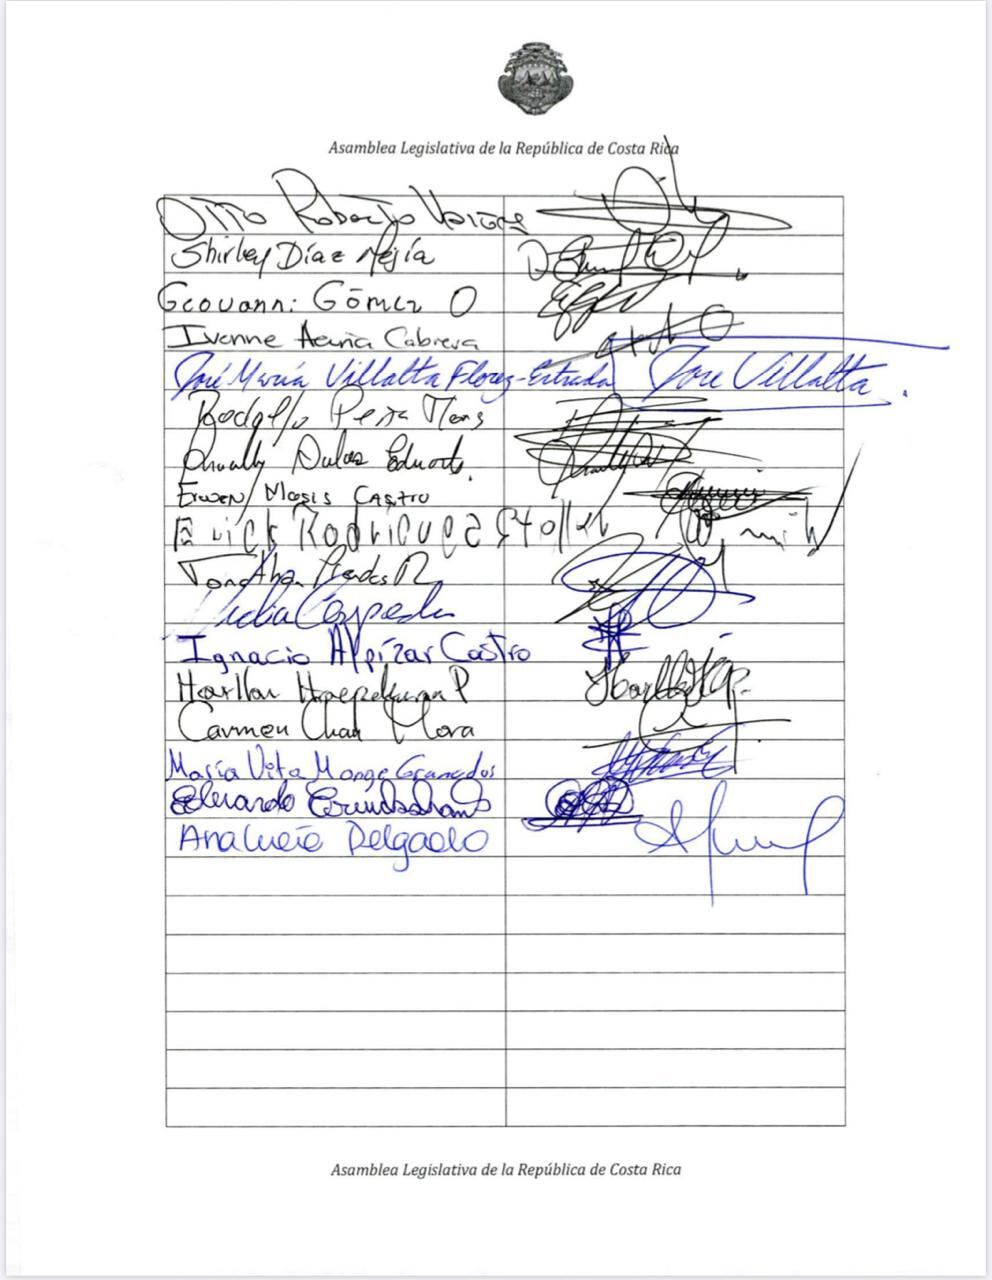 Asamblea Legislativa de la República de Costa Rica
Otto Roberto Vargas
Shirley Díaz Mejía
Geovanni Gómez O
Ivonne Acuña Cabrera
José María Villalta Florez-Estrada José Villalta
Rodolfo Peña
Dulas Eduarte
Erwen Masis Castro
Erick Rodríguez Steller
Jonathan Prendas R
Nidia Céspedes
Ignacio Alpízar Castro
Harllan Hoepelman P
Carmen Chan Mora
María Vita Monge Granados
Eduardo Cruickshank
Ana Lucía Delgado
Asamblea Legislativa de la República de Costa Rica